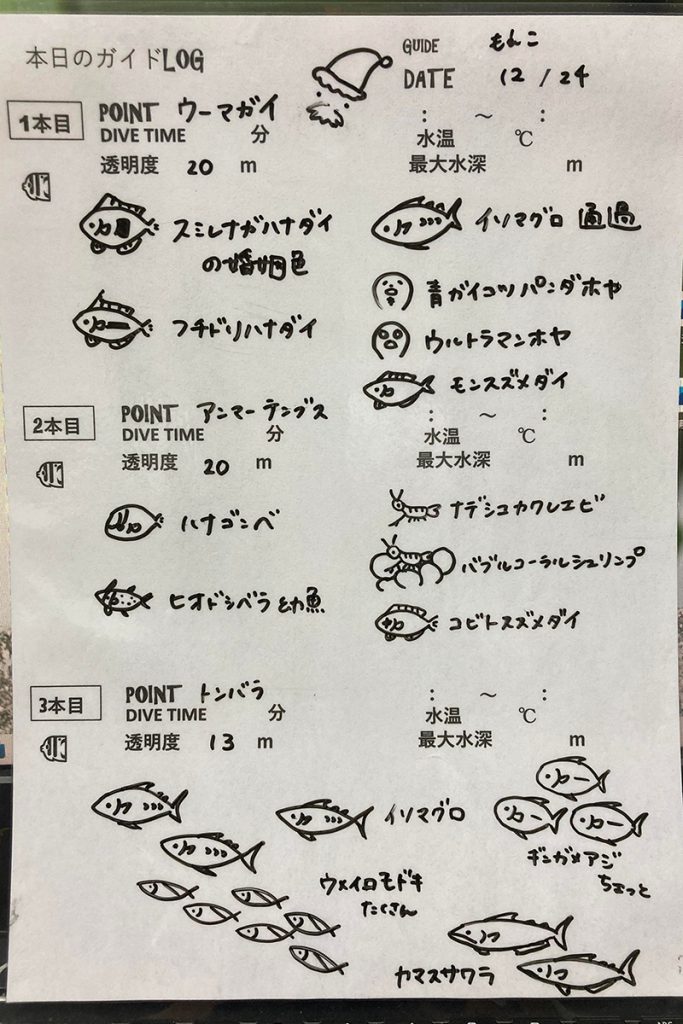 本日のガイドLOG
GUIDE もんこ
DATE 12 / 24
1本目 POINT ウーマガイ : ～ :
DIVE TIME 分 水温 ℃
透明度 20 m 最大水深 m
スミレナガハナダイ
の婚姻色
イソマグロ 通過
青ガイコツパンダホヤ
フチドリハナダイ
ウルトラマンホヤ
モンスズメダイ
2本目 POINT アンマーテンブス : ～ :
DIVE TIME 分 水温 ℃
透明度 20 m 最大水深 m
ハナゴンベ
ナデシコカクレエビ
バブルコーラルシュリンプ
ヒオドシベラ幼魚
コビトスズメダイ
3本目 POINT トンバラ : ～ :
DIVE TIME 分 水温 ℃
透明度 13 m 最大水深 m
イソマグロ
ギンガメアジ
ちょっと
ウメイロモドキ
たくさん
カマスサワラ